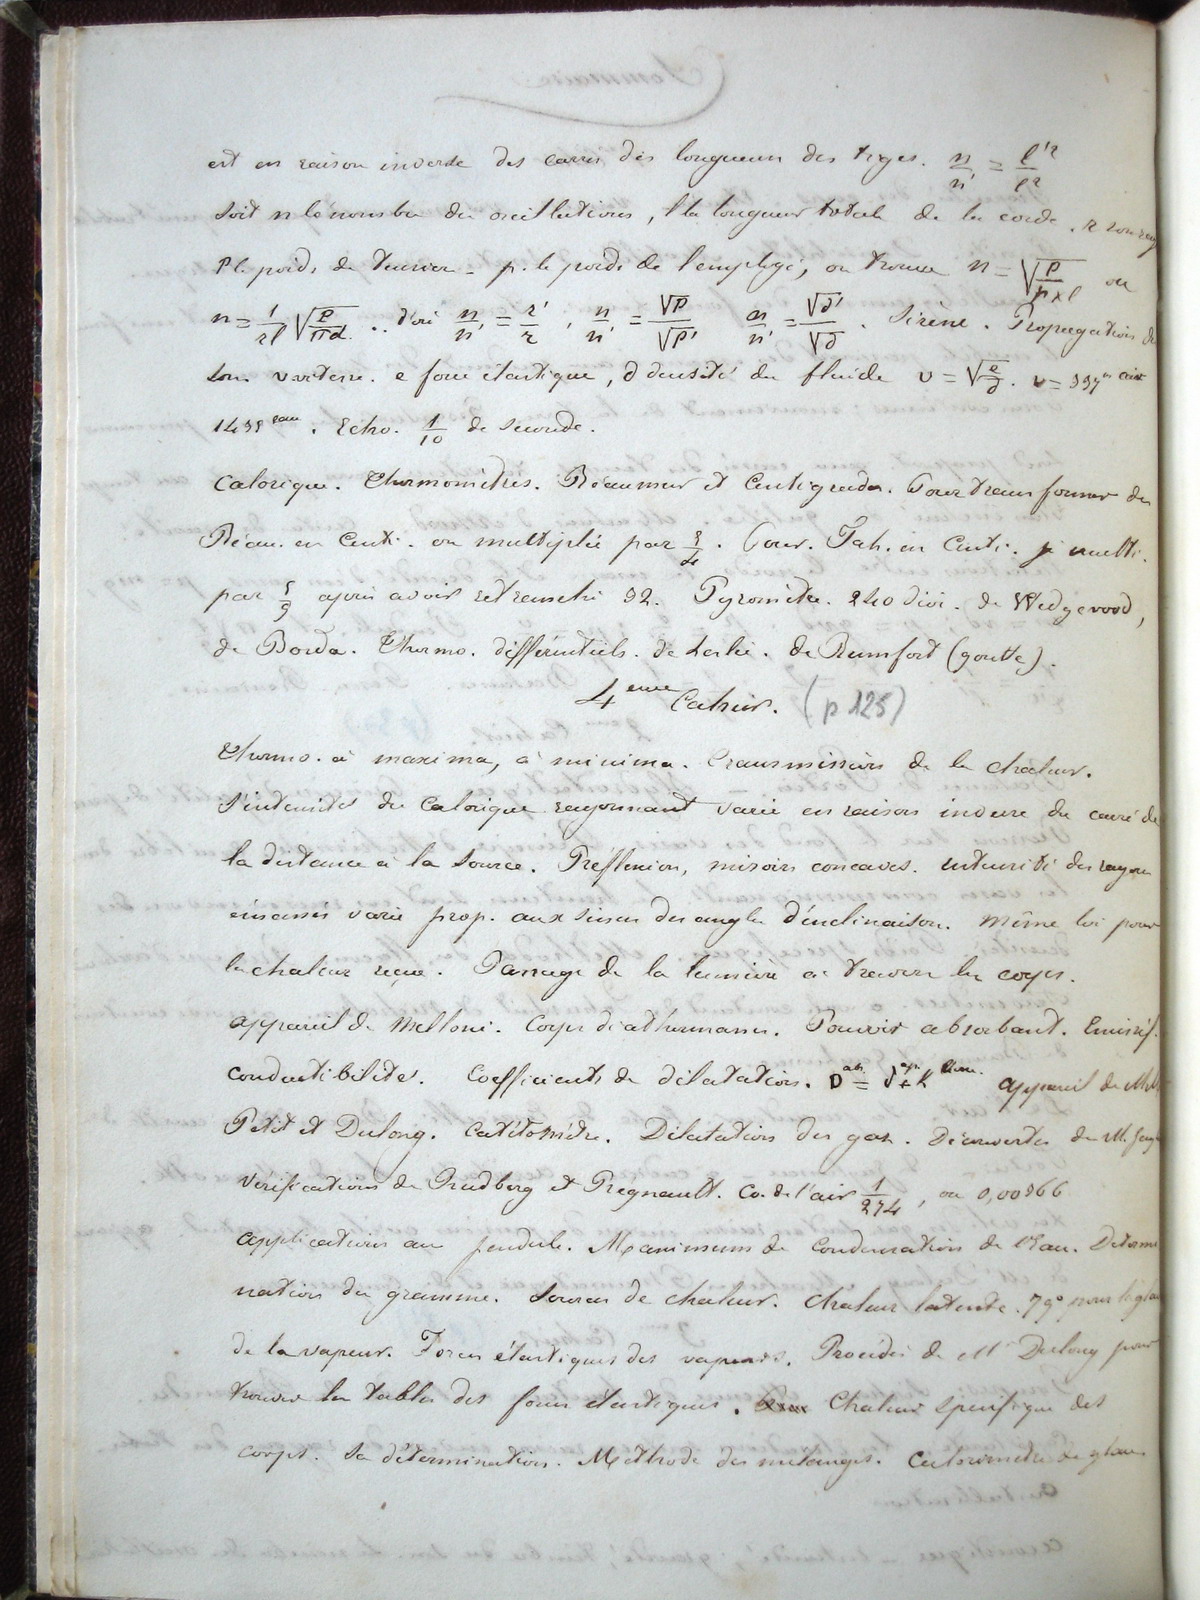 est en raison inverse des carrés des longueurs des tiges. n/n' = l'²/l²
Soit n le nombre des oscillations, l la longueur totale de la corde, r son ray
P le poids de tension - p. le poids de l employé, on trouve n = √(P/(p×l)) ou
n = 1/rl √(P/πd) .. d'où n/n' = r'/r, n/n' = √P/√P' n/n' = √d'/√d. Sirène. Propagation du
son vitesse. e force élastique, d densité du fluide v = √(e/d). v = 337m air
1435 eau. Echo. 1/10 de seconde.
Calorique. Thermomètres. Réaumur et Centigrade. Pour transformer des
Réau. en Centi. on multiplie par 5/4. Pour. Fah. en Centi. je multi.
par 5/9 après avoir retranché 32. Pyromètre. 240 divi. de Wedgevood,
de Borda. Thermo. différentiels. de Leslie. de Rumfort (goutte).
4eme Cahier. (p 125)
Thermo. à maxima, à minima. Transmission de la chaleur.
L'intensité du Calorique rayonnant varie en raison inverse du carré de
la distance à la source. Réflexion, miroirs concaves. intensité des rayons
émanés varie prop. aux sinus des angles d'inclinaison. Même loi pour
la chaleur reçue. Passage de la lumière à travers les corps.
appareil de Melloni. Corps diathermanes. Pouvoir absorbant. Emissif.
Conductibilité. Coefficients de dilatation. D = d + k appareil de MM
Petit et Dulong. Catétomètre. Dilatation des gaz. Découvertes de M. Gay
Vérifications de Rudberg et Regnault. Co. de l'air 1/274, ou 0,00366
applications au pendule. Maximum de condensation de l'Eau. Determi
nation du gramme. Sources de chaleur. Chaleur latente. 79° pour la glace
de la vapeur. Forces élastiques des vapeurs. Procédés de Mr Dulong pour
trouver les tables des forces élastiques. Chaleur spécifique des
corps. Sa détermination. Méthode des mélanges. Calorimètre de glace